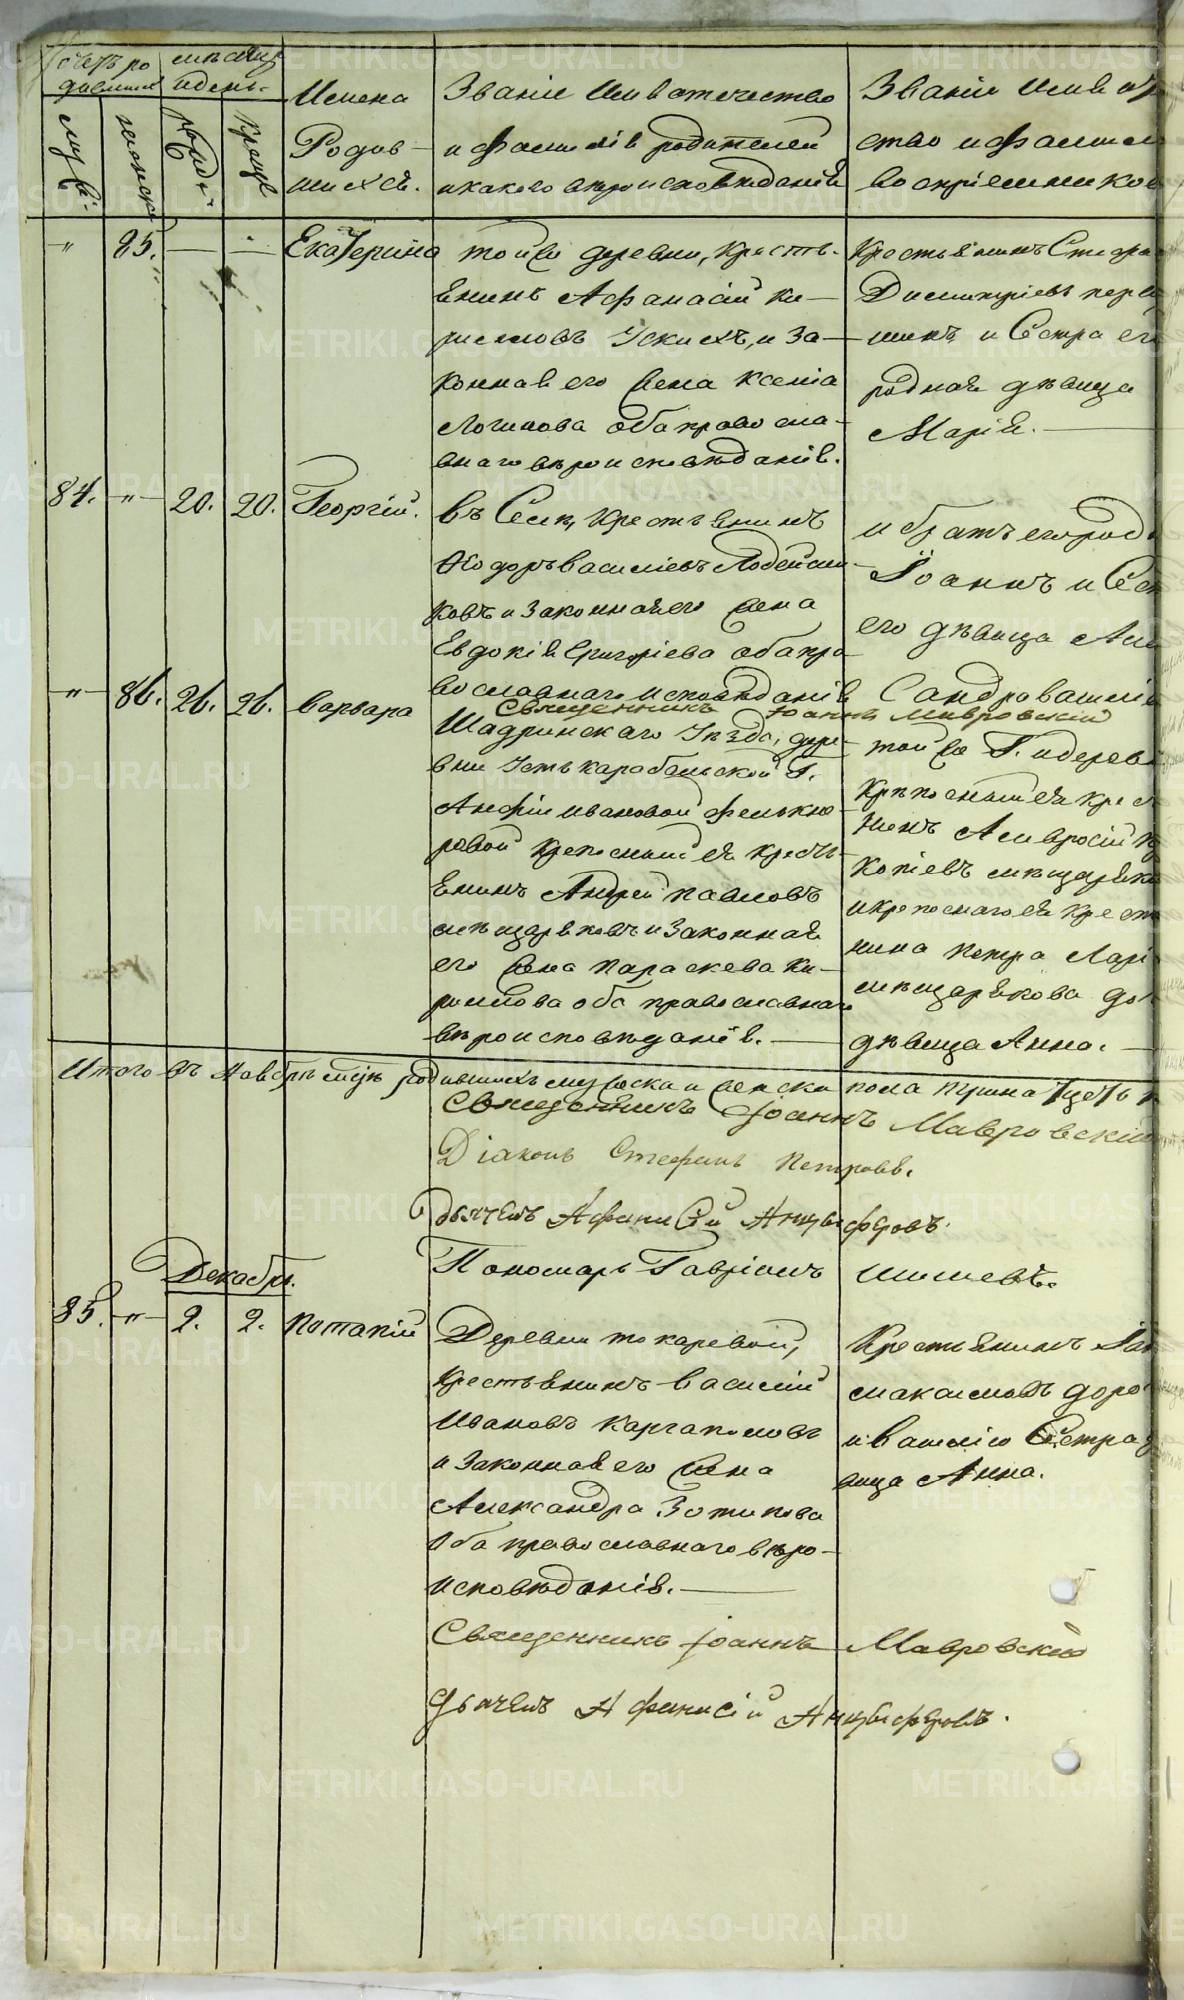 Счетъ ро
дившихся
Мѣсяцъ
и день.
муж:
женска
рожд:
крещ:
Имена
Родив-
шихся.
Званіе Имя отечество
и фамилія родителей
и какого вѣроисповѣданія
Званіе Имя и
ство и фамил
воспріемников
" 85. — — Екатерина
той же деревни, кресть-
янинъ Афанасій Ки-
рилловъ Ускихъ, и за-
конная его жена Ксенія
Логинова оба правосла-
внаго вѣроисповѣданія.
Крестьянинъ Стефа
Димитріевъ
и Сестра его
родная дѣвица
Марія.
84. " 20. 20. Георгій.
въ Селѣ, Крестьянинъ
Ѳедоръ Василіевъ Лобейщи-
ковъ и законная его жена
Евдокія Григоріева оба пра-
вославнаго исповѣданія
и братъ его род
Іоаннъ и Сес
его дѣвица Але
Сандра Василі
Священникъ Іоаннъ Мавровскій
" 86. 26. 26. Варвара
Шадринскаго Уѣзда, дере-
вни Усть карабольской Г.
Анфіи Ивановой Фелькне-
ровой крепосный ея кресть-
янинъ Андрей Павловъ
мѣщеряковъ и законная
его жена Параскева Ки-
риллова оба православнаго
вѣроисповѣданія.
той же Г. и деревн
Крѣпосный ея крес
янинъ Амвросій
Копіевъ мѣщеряко
и крепоснаго ея крестья
нина Петра Ларі
мѣщерякова до
дѣвица Анна.
Итого въ Ноябрѣ мцѣ родившихся мужеска и женска пола
Священникъ Іоаннъ Мавровскій
Діаконъ Стефанъ Петровъ.
Дьячекъ Афанасій Анцыферовъ.
Пономарь Гавріилъ Шишевъ.
Декабрь.
85. " 2. 2. Потапій
Деревни токаревой,
Крестьянинъ Василій
Ивановъ Каргаполовъ
и законная его жена
Александра Зотикова
Оба православнаго вѣро-
исповѣданія.
Крестьянинъ
максимовъ доро
и Василію Сестра д
вица Анна.
Священникъ Іоаннъ Мавровскій
Дьячекъ Афанасій Анцыферовъ.
METRIKI.GASO-URAL.RU